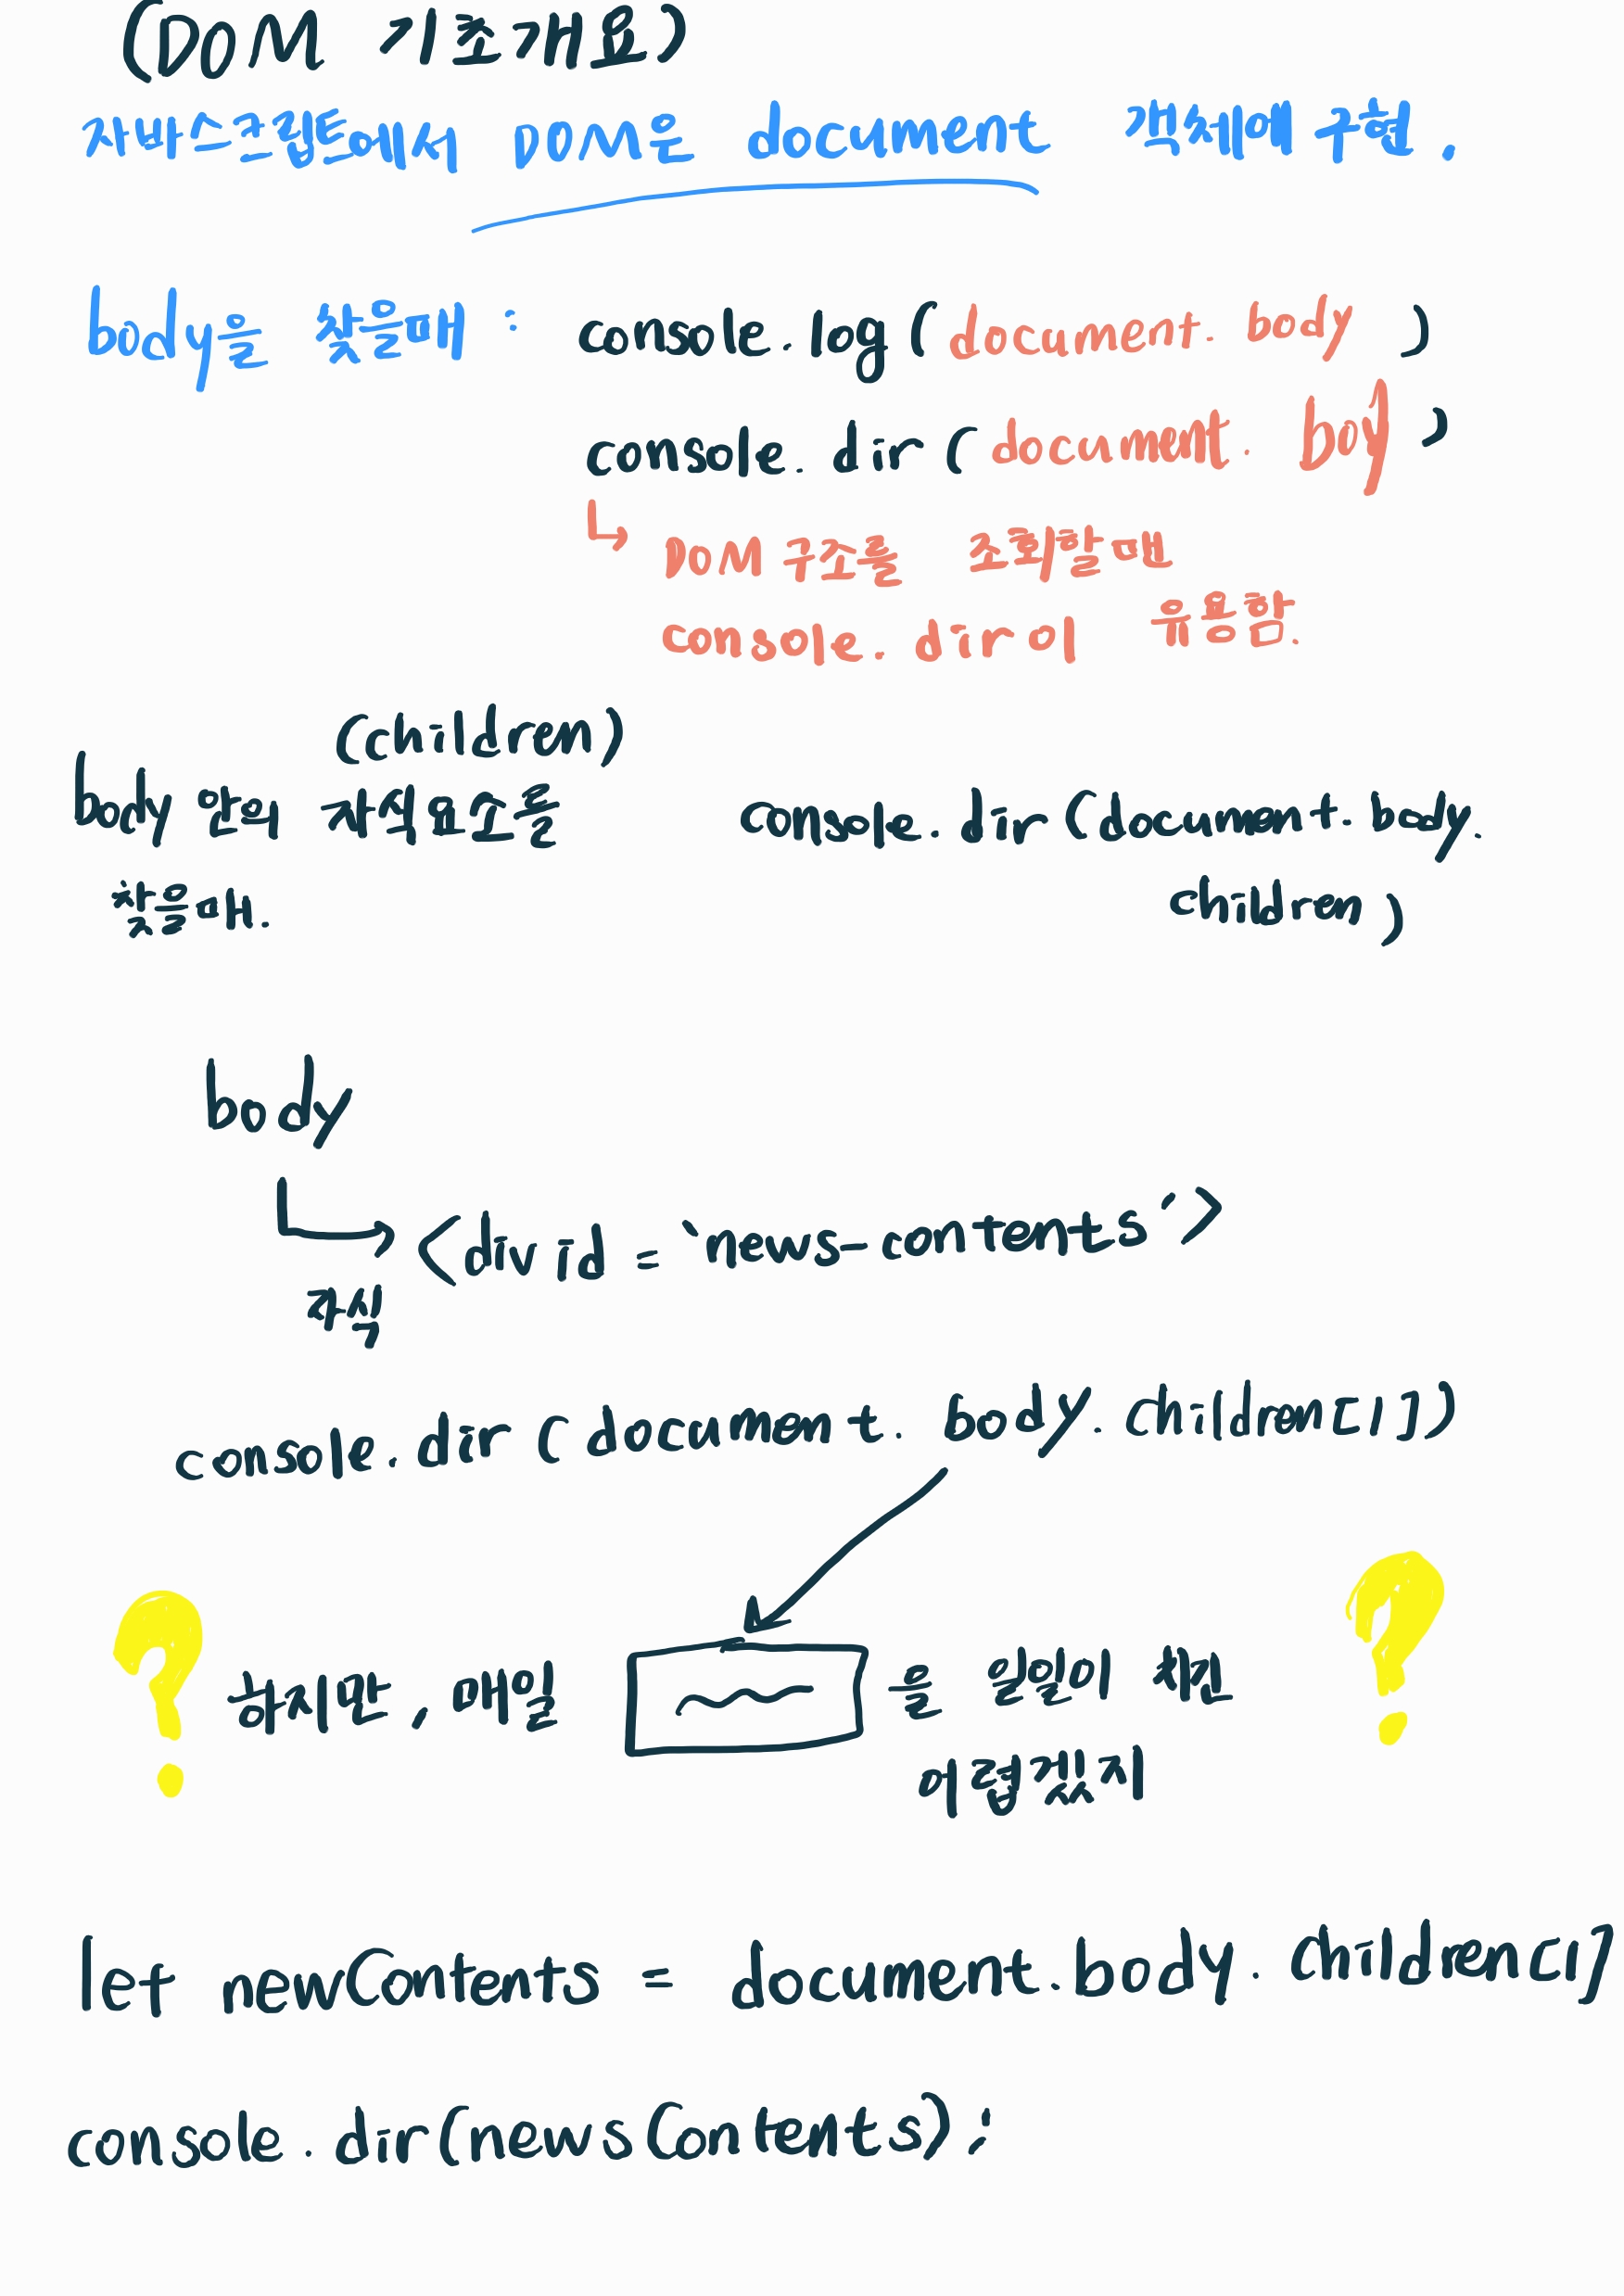 (DOM 기초개요)
자바스크립트에서 DOM은 document 객체에 구현.
body를 찾을때 : console.log(document.body)
console.dir(document.body)
DOM구조를 조회할땐
console.dir이 유용함.
(children)
body 안의 자식요소를 console.dir(document.body.
찾을때. children)
body
<div id = 'news-contents'>
자식
console.dir(document.body.children[1])
하지만, 매일 을 일일이 치긴
어렵겠지
let newContents = document.body.children[1]
console.dir(newsContents);